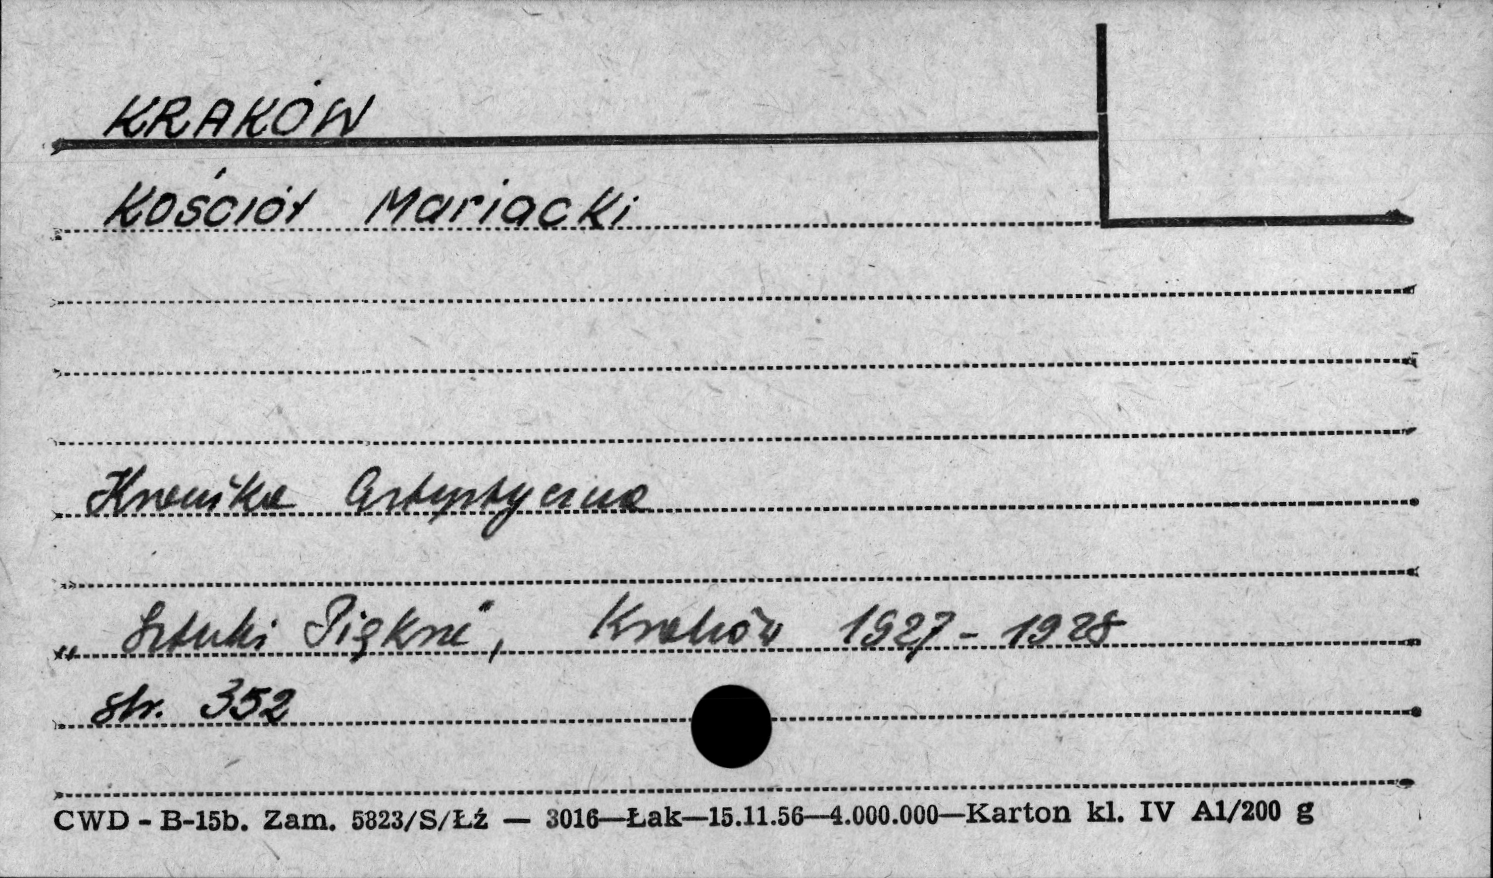 KRAKÓW
Kościół Mariacki
Kronika Artystyczna
„Sztuki Piękne”, Kraków 1927-1928
str. 352
CWD - B-15b. Zam. 5823/S/Łź — 3016—Łak—15.11.56—4.000.000—Karton kl. IV A1/200 g